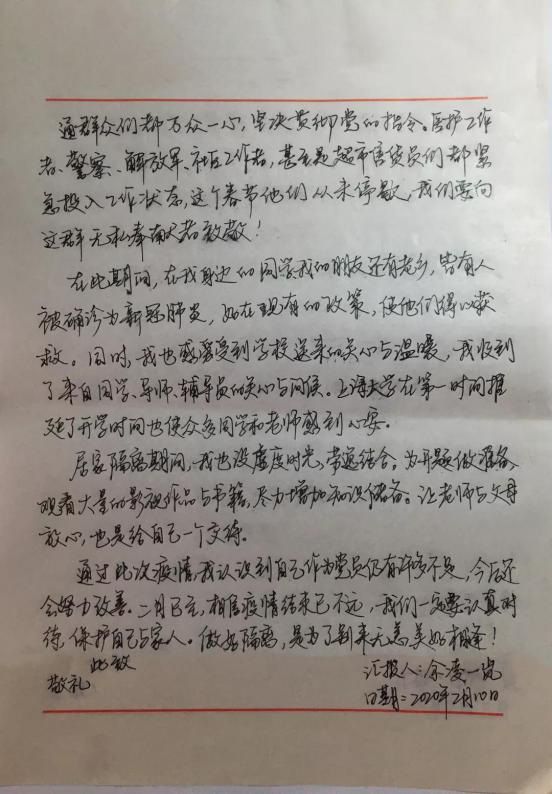 通群众们都万众一心,坚决贯彻党的指令。医护工作
者、警察、解放军、社区工作者,甚至是超市售货员们都紧
急投入工作状态,这个春节他们从未停歇,我们要向
这群无私奉献者致敬!
在此期间,在我身边的同学我的朋友还有老乡,皆有人
被确诊为新冠肺炎,好在现有的政策,使他们得以获
救。同时,我也感受到学校送来的关心与温暖,我收到
了来自同学、导师、辅导员的关心与问候。上海大学在第一时间推
延了开学时间也使众多同学和老师感到心安。
居家隔离期间,我也没虚度时光,劳逸结合。为开题做准备,
观看大量的影视作品与书籍,尽力增加知识储备。让老师与父母
放心,也是给自己一个交待。
通过此次疫情,我认识到自己作为党员仍有许多不足,今后还
会努力改善。二月已至,相信疫情结束已不远,我们一定要认真对
待,保护自己与家人。做好隔离,是为了到来无恙美好相逢!
此致
敬礼
汇报人:余凌一岚
日期:2020年2月10日